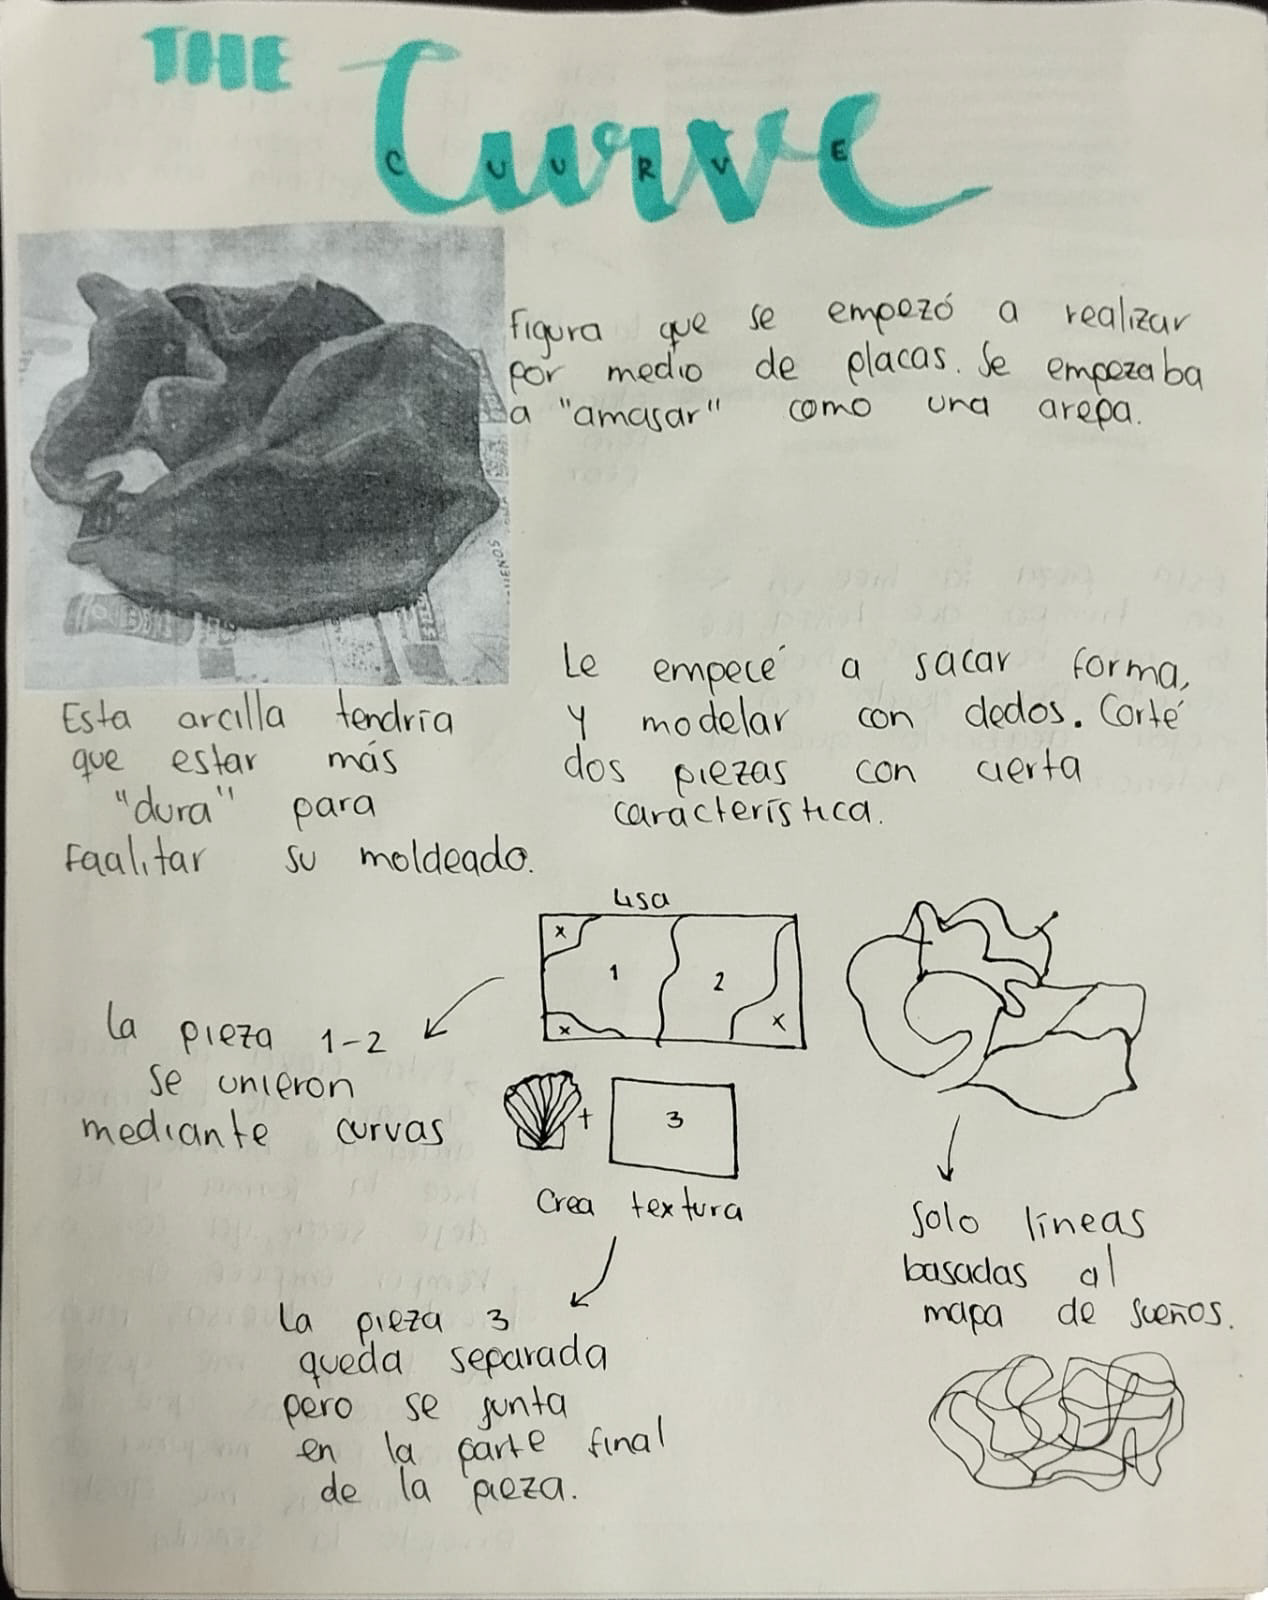 THE
Curve
C U U R V E
Figura que se empezó a realizar
por medio de placas. Se empezaba
a "amasar" como una arepa.
Esta arcilla tendría
que estar más
"dura" para
Facilitar su moldeado.
Le empecé a sacar forma,
y modelar con dedos. Corté
dos piezas con cierta
característica.
Lisa
x
1
2
x
x
La pieza 1-2
se unieron
mediante curvas
+
3
Crea textura
La pieza 3
queda separada
pero se junta
en la parte final
de la pieza.
Solo líneas
basadas al
mapa de sueños.